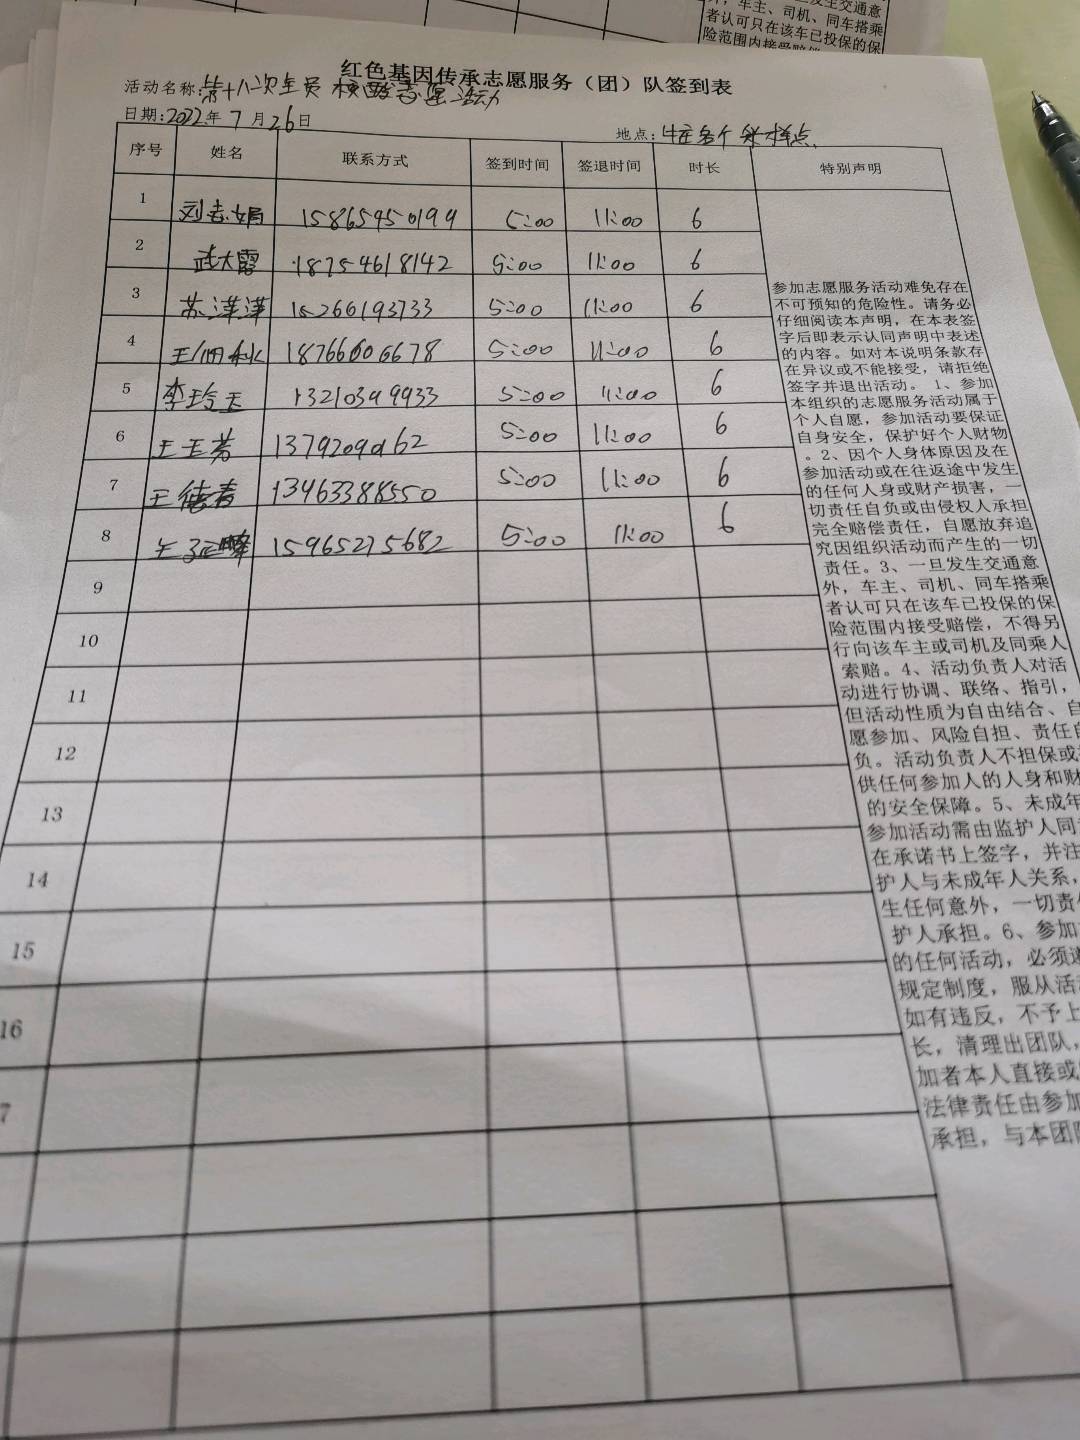 车主、司机、同车搭乘
者认可只在该车已投保的保
险范围内接受赔偿
红色基因传承志愿服务（团）队签到表
活动名称:第十八次全员核酸志愿活动
日期:2022年7月26日
地点: 各个采样点
序号 姓名 联系方式 签到时间 签退时间 时长 特别声明
1 刘志娟 15865950199 5:00 11:00 6
2 武大露 18754618142 5:00 11:00 6
3 苏洋洋 15266193733 5:00 11:00 6
4 18766606678 5:00 11:00 6
5 李玲玉 13210399933 5:00 11:00 6
6 王玉芳 13792090162 5:00 11:00 6
7 王德春 13963388550 5:00 11:00 6
8 15965275682 5:00 11:00 6
9
10
11
12
13
14
15
16
7
参加志愿服务活动难免存在
不可预知的危险性。请务必
仔细阅读本声明，在本表签
字后即表示认同声明中表述
的内容。如对本说明条款存
在异议或不能接受，请拒绝
签字并退出活动。 1、参加
本组织的志愿服务活动属于
个人自愿，参加活动要保证
自身安全，保护好个人财物
。2、因个人身体原因及在
参加活动或在往返途中发生
的任何人身或财产损害，一
切责任自负或由侵权人承担
完全赔偿责任，自愿放弃追
究因组织活动而产生的一切
责任。3、一旦发生交通意
外，车主、司机、同车搭乘
者认可只在该车已投保的保
险范围内接受赔偿，不得另
行向该车主或司机及同乘人
索赔。4、活动负责人对活
动进行协调、联络、指引，
但活动性质为自由结合、自
愿参加、风险自担、责任自
负。活动负责人不担保或
供任何参加人的人身和财
的安全保障。5、未成年
参加活动需由监护人同
在承诺书上签字，并注
护人与未成年人关系，
生任何意外，一切责任
护人承担。6、参加
的任何活动，必须遵
规定制度，服从活
如有违反，不予上
长，清理出团队，
加者本人直接或
法律责任由参加
承担，与本团队